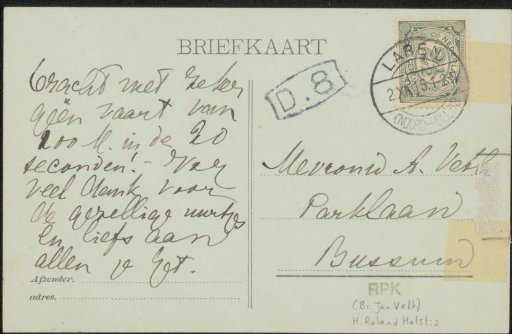 BRIEFKAART
LAREN
(NOORD-HOLL.)
D.8
bracht met zeker
géén vaart van
200 M. in de 20
seconden! - Voor
veel dank voor
de gezellige
en liefs aan
allen je Jet.
Mevrouw A. Veth
Parklaan
Bussum
Afzender.
adres.
RPK
(Br. Jan Veth)
H. Roland Holst:2